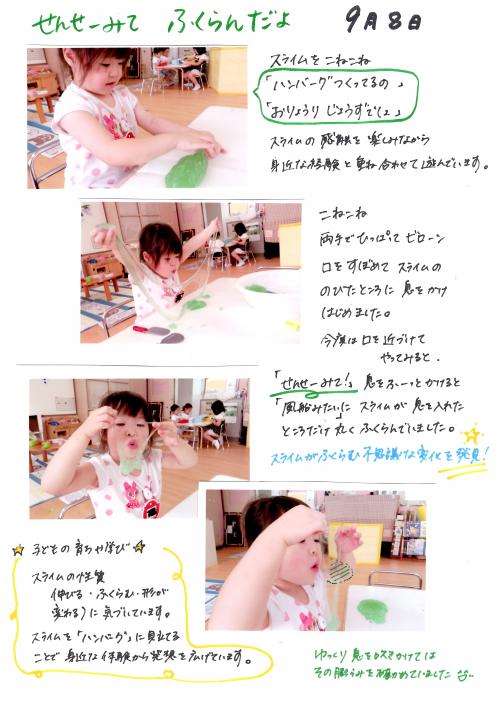 せんせーみて ふくらんだよ 9月8日
スライムを こねこね
「ハンバーグつくってるの」
「おりょうり じょうずでしょ」
スライムの 感触を 楽しみながら
身近な体験と重ね合わせて遊んでいます。
こねこね
両手でひっぱって ビローン
口をすぼめて スライムの
のびたところに 息をかけ
はじめました。
今度は口を近づけて
やってみると、
「せんせーみて!」息をふーっとかけると
「風船みたいに」スライムが 息を入れた
ところだけ 丸くふくらんでいました。
スライムがふくらむ不思議な変化を発見!
子どもの育ちや学び
スライムの性質
(伸びる・ふくらむ・形が
変わる)に気づいています。
スライムを「ハンバーグ」に見立てる
ことで身近な体験から発想を広げています。
ゆっくり息を吹きかけては
その膨らみを確かめていました